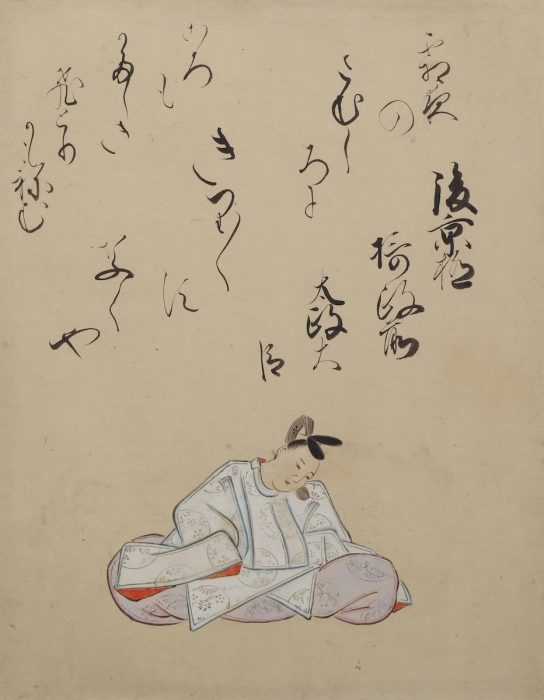 後京極
摂政前
太政大
臣
きり〱
す
なく
や
霜夜
の
さむし
ろに
ころ
も
かたしき
飛とり
かも祢む